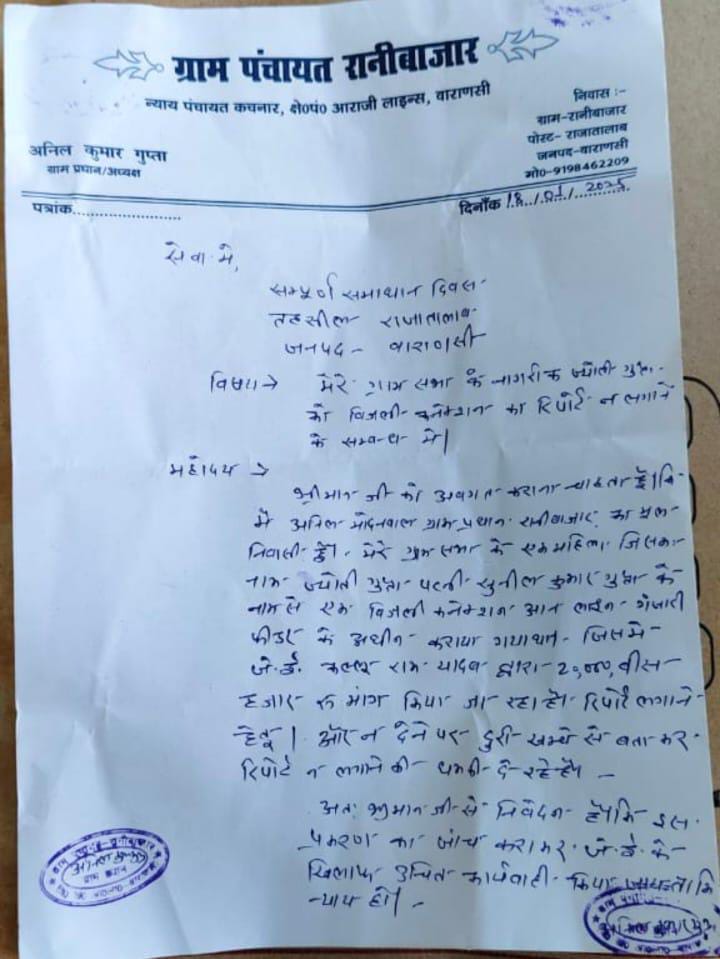 ग्राम पंचायत रानीबाजार
न्याय पंचायत कचनार, क्षे0पं0 आराजी लाइन्स, वाराणसी
अनिल कुमार गुप्ता
ग्राम प्रधान/अध्यक्ष
निवास :-
ग्राम-रानीबाजार
पोस्ट- राजातालाब
जनपद-वाराणसी
मो0-9198462209
पत्रांक..........................
दिनाँक 18/01/2025
सेवा मे,
सम्पूर्ण समाधान दिवस
तहसील राजातालाब
जनपद - वाराणसी
विषय → मेरे ग्राम सभा के नागरीक ज्योती गुप्ता
को बिजली कनेक्शन का रिपोर्ट न लगाने
के सम्बन्ध मे।
महोदय →
श्रीमान जी को अवगत कराना चाहता है। कि
मै अनिल मोदनवाल ग्राम प्रधान रानीबाजार का मूल
निवासी हूँ। मेरे ग्राम सभा के एक महिला जिसका
नाम ज्योती गुप्ता पत्नी सुनील कुमार गुप्ता के
नाम से एक बिजली कनेक्शन आन लाइन गंजारी
फीडर के अधीन कराया गया था जिसमे
जे.ई. कल्लू राम यादव द्वारा 20,000, बीस
हजार रू मांग किया जा रहा है। रिपोर्ट लगाने
हेतू। और न देने पर दुरी खम्भे से बता कर
रिपोर्ट न लगाने की धमकी दे रहे है। -
अतः श्रीमान जी से निवेदन है। कि इस
प्रकरण का जांच कराकर जे.ई. के
खिलाफ उचित कार्यवाही किया जाय ताकि
न्याय हो। -
ग्राम प्रधान